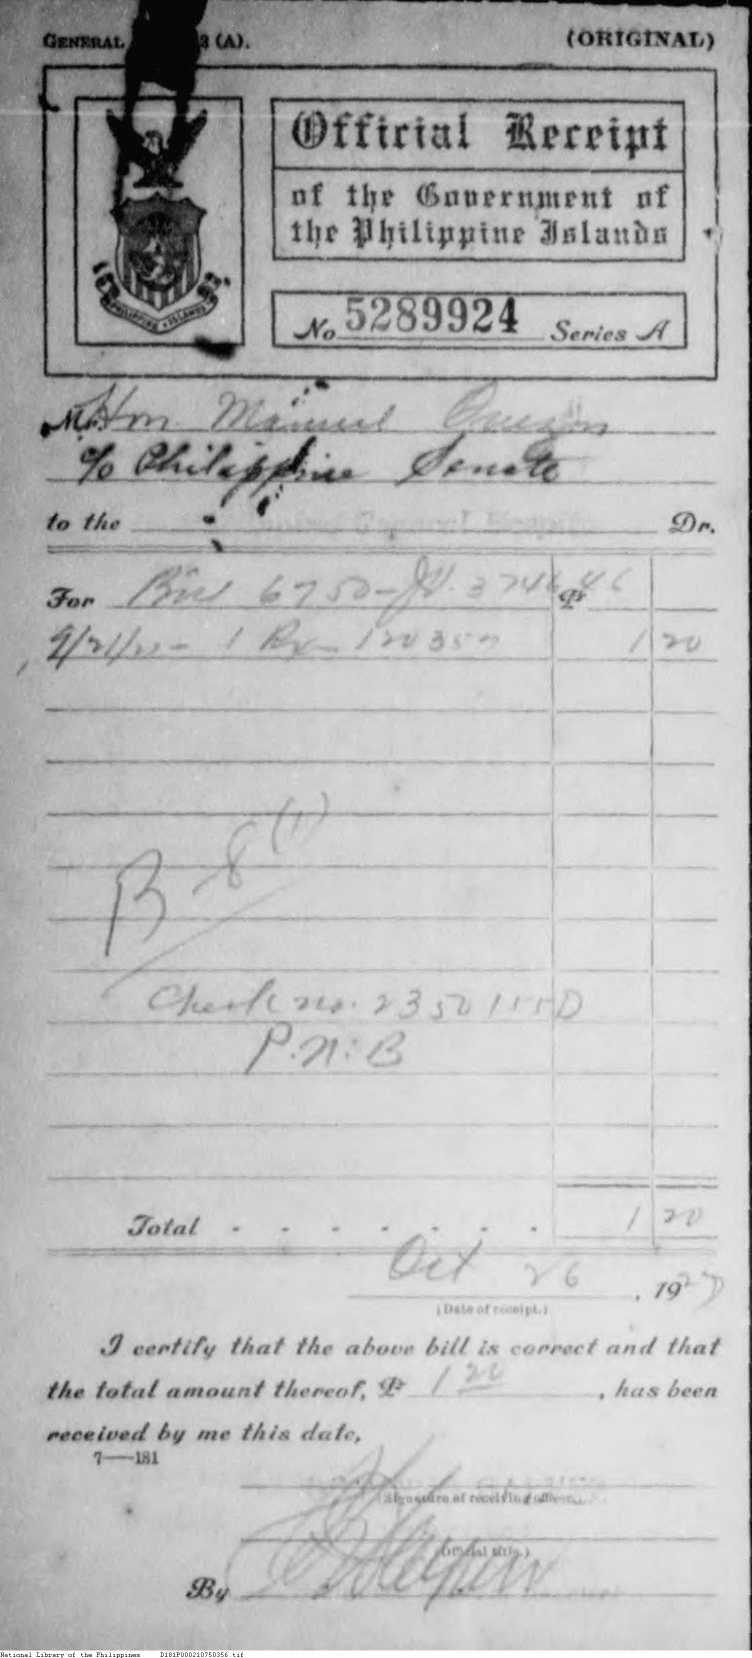 GENERAL (A).
(ORIGINAL)
Official Receipt
of the Government of
the Philippine Islands
PHILIPPINE ISLANDS
No 5289924 Series A
Mr. Hon. Manuel Quezon
c/o Philippine Senate
to the Dr.
For Bill 6750- ₱
1 120357 1 20
B-8 (1)
Check no. D
P.N.B
Total - - - - - - - 1 20
Oct 26, 1927
(Date of receipt.)
I certify that the above bill is correct and that
the total amount thereof, ₱ 1 20, has been
received by me this date.
7—181
(Signature of receiving officer.)
(Official title.)
By
National Library of the Philippines D181P000210750356.tif